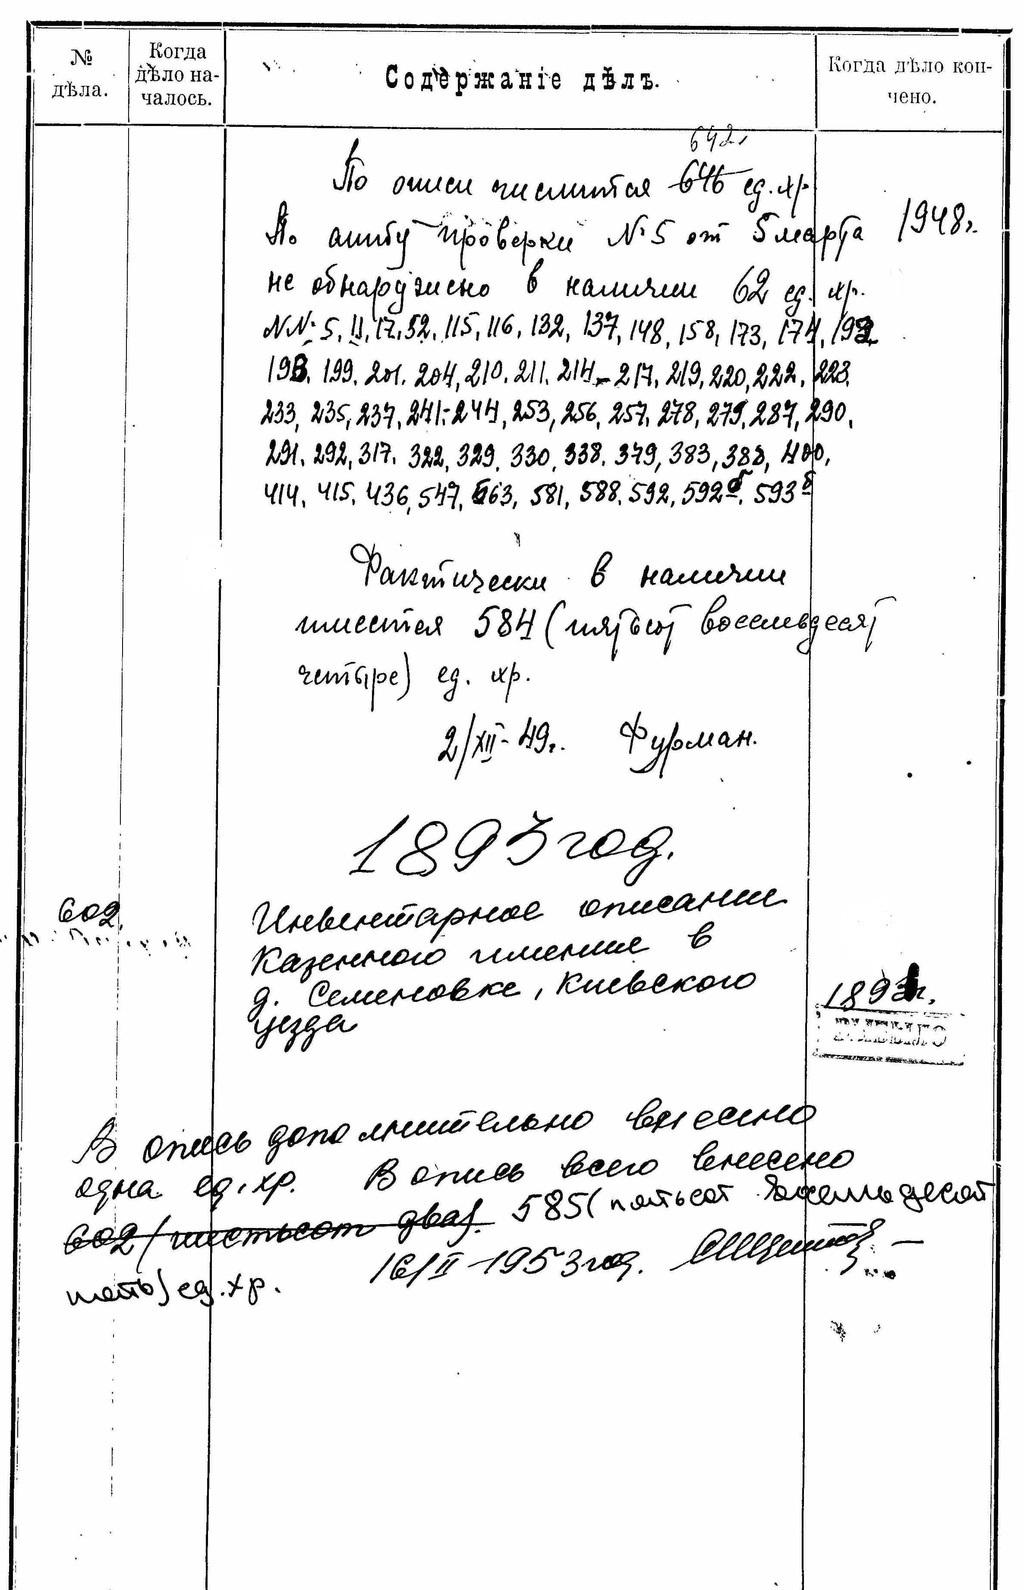 № дѣла.
Когда дѣло на-
чалось.
Содержаніе дѣлъ.
Когда дѣло кон-
чено.
642.
По описи числится 646 ед. хр.
По акту проверки №5 от 5 марта 1948г.
не обнаружено в наличии 62 ед. хр.
NN: 5, 11, 17, 52, 115, 116, 132, 137, 148, 158, 173, 174, 193,
198, 199, 201, 204, 210, 211, 214-217, 219, 220, 222, 223,
233, 235, 237, 241-244, 253, 256, 257, 278, 279, 287, 290,
291, 292, 317, 322, 329, 330, 338, 379, 383, 388, 400,
414, 415, 436, 547, 563, 581, 588, 592, 592б, 593б
Фактически в наличии
имеется 584 (пятьсот восемьдесят
четыре) ед. хр.
2/XII-49г. Фурман.
1893 год.
602. Инвентарное описание
Казенного имения в
д. Семеновке, Киевского
уезда
1893г.
В опись дополнительно внесено
одна ед. хр. В опись всего внесено
602 (шестьсот два). 585 (пятьсот восемьдесят
пять) ед. хр. 16/II-1953 год.